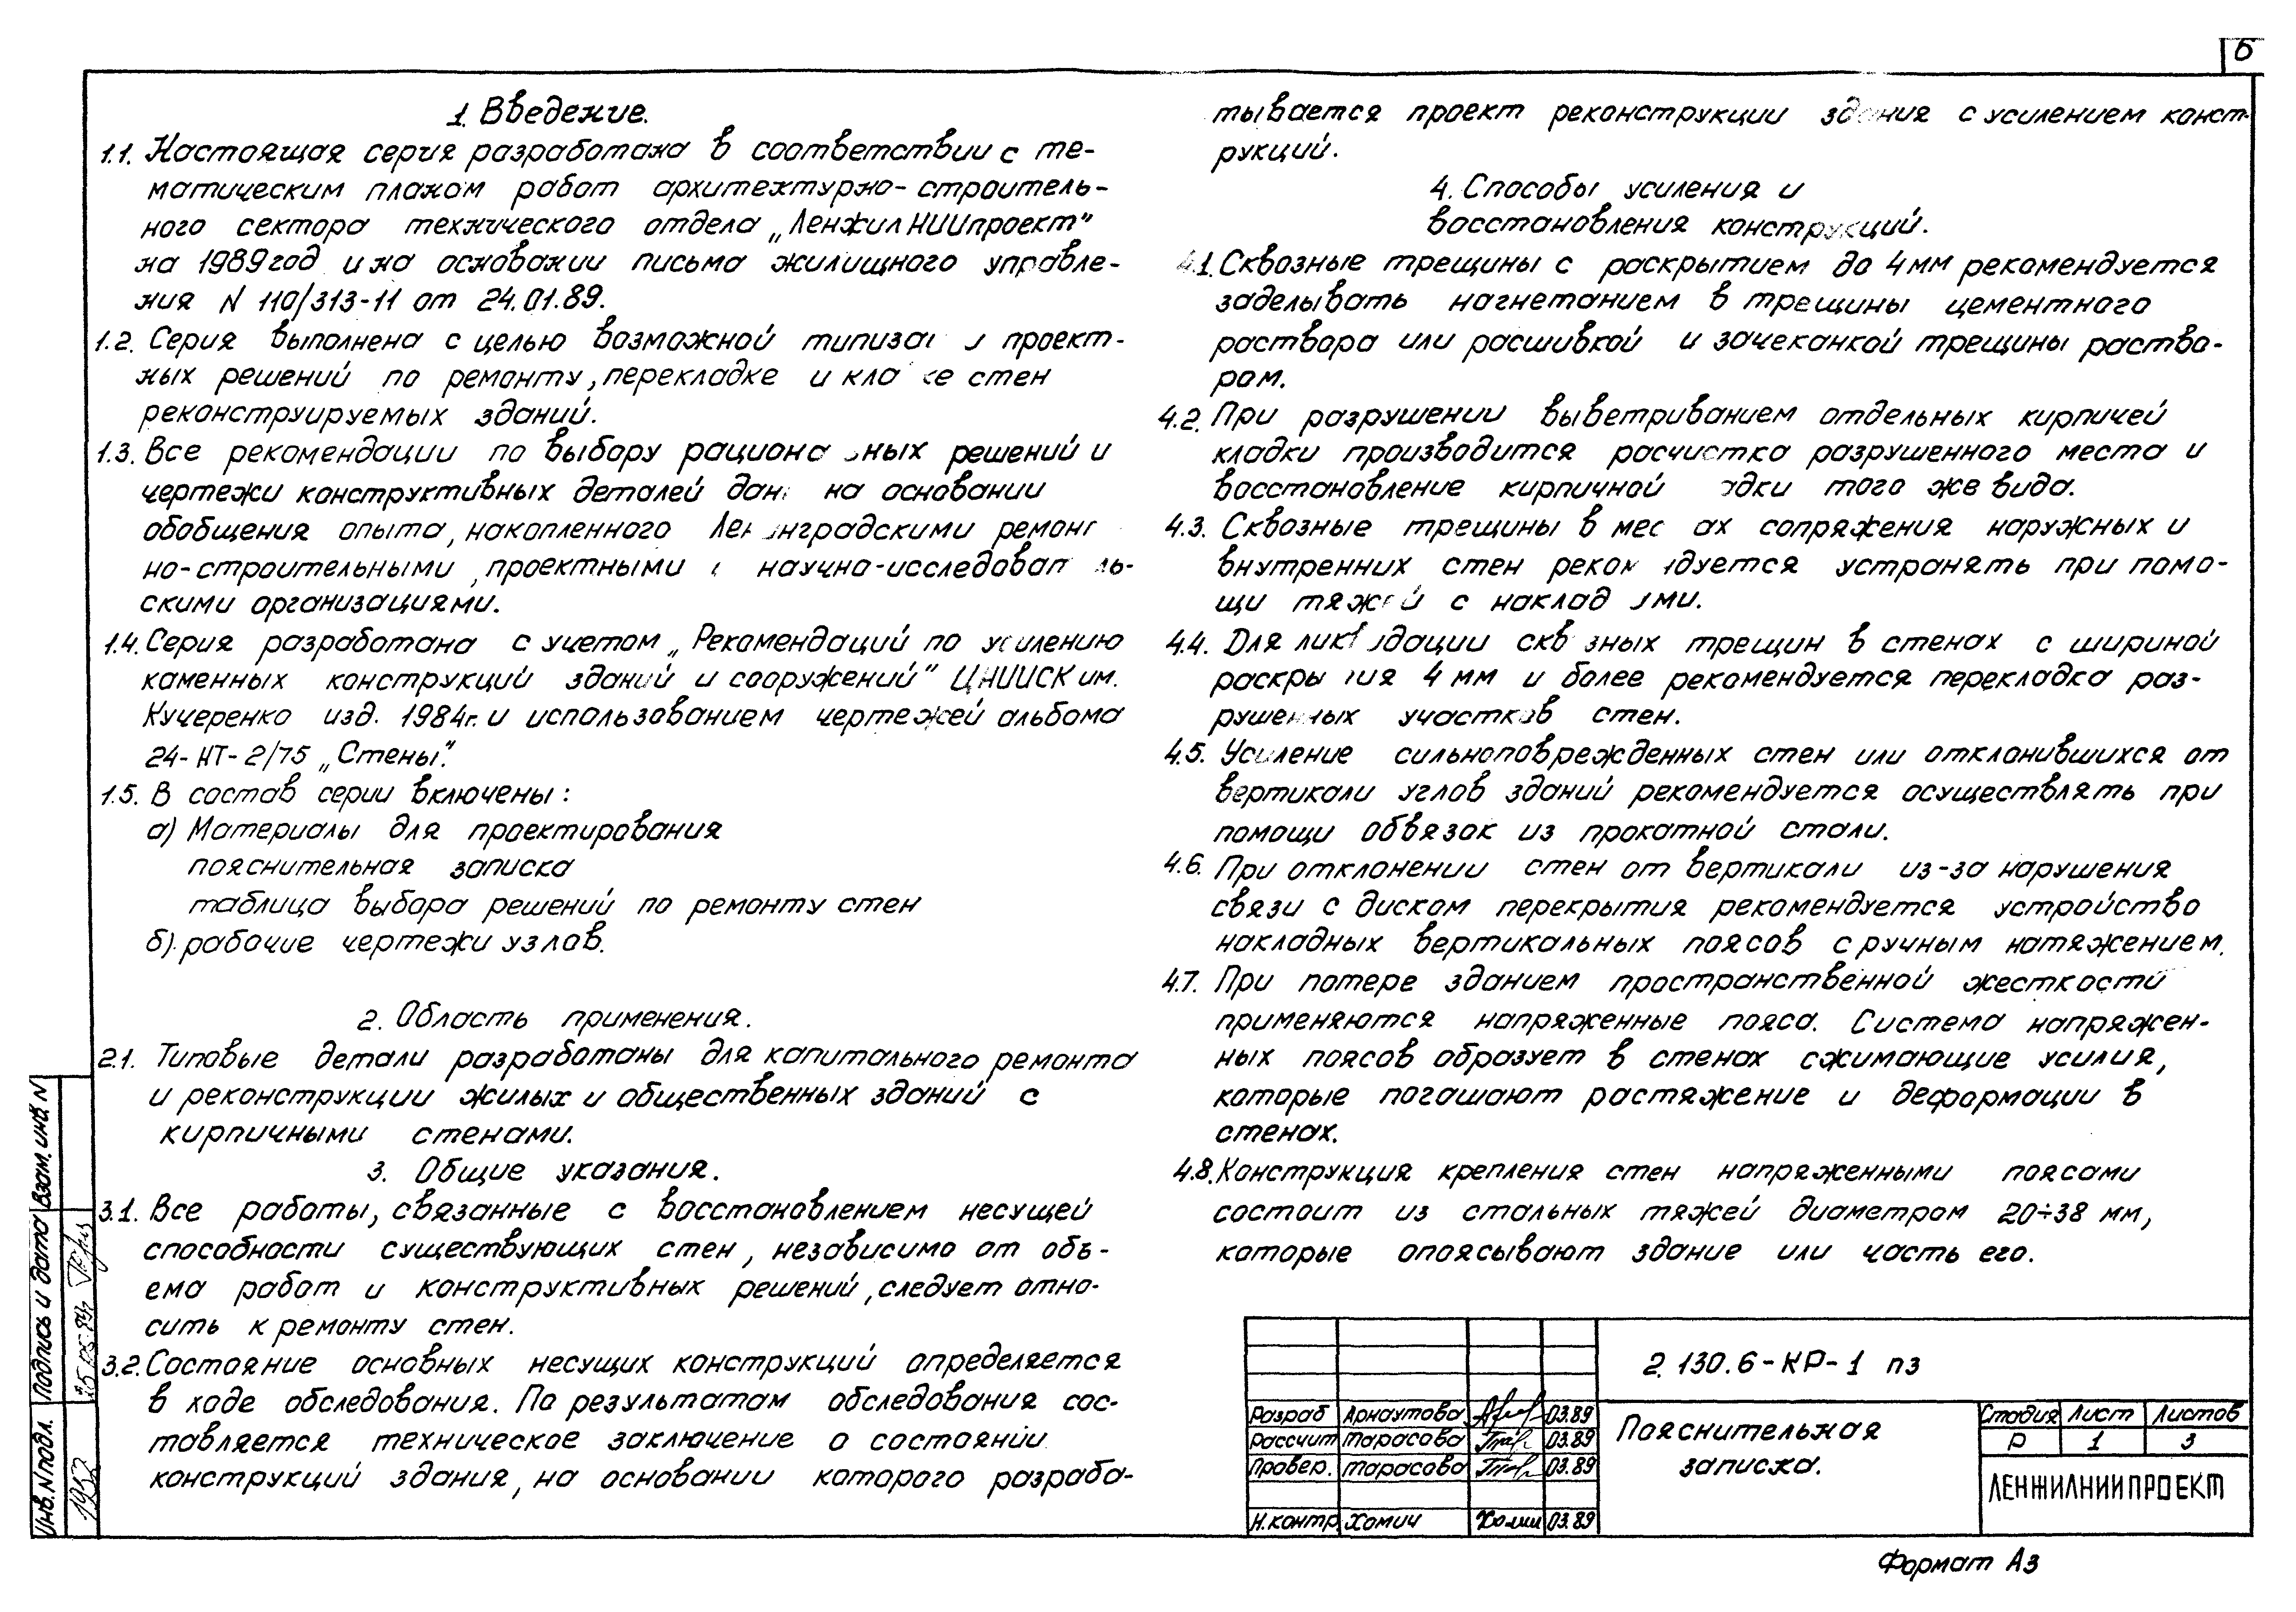 6
1. Введение.
1.1. Настоящая серия разработана в соответствии с те-
матическим планом работ архитектурно-строитель-
ного сектора технического отдела „ЛенжилНИИпроект"
на 1989 год и на основании письма жилищного управле-
ния N 110/313-11 от 24.01.89.
1.2. Серия выполнена с целью возможной проект-
ных решений по ремонту, перекладке и стен
реконструируемых зданий.
1.3. Все рекомендации по выбору решений и
чертежи конструктивных деталей на основании
обобщения опыта, накопленного
но-строительными, проектными
скими организациями.
1.4. Серия разработана с учетом „Рекомендаций по усилению
каменных конструкций зданий и сооружений" ЦНИИСК им.
Кучеренко изд. 1984г. и использованием чертежей альбома
24-НТ-2/75 „Стены".
1.5. В состав серии включены:
а) Материалы для проектирования
пояснительная записка
таблица выбора решений по ремонту стен
б). рабочие чертежи узлов.
2. Область применения.
2.1. Типовые детали разработаны для капитального ремонта
и реконструкции жилых и общественных зданий с
кирпичными стенами.
3. Общие указания.
3.1. Все работы, связанные с восстановлением несущей
способности существующих стен, независимо от объ-
ема работ и конструктивных решений, следует отно-
сить к ремонту стен.
3.2. Состояние основных несущих конструкций определяется
в ходе обследования. По результатам обследования сос-
тавляется техническое заключение о состоянии
конструкций здания, на основании которого разраба-
тывается проект реконструкции здания с усилением конст-
рукций.
4. Способы усиления и
восстановления конструкций.
4.1. Сквозные трещины с раскрытием до 4 мм рекомендуется
заделывать нагнетанием в трещины цементного
раствора или расшивкой и зачеканкой трещины раство-
ром.
4.2. При разрушении выветриванием отдельных кирпичей
кладки производится расчистка разрушенного места и
восстановление кирпичной того же вида.
4.3. Сквозные трещины в сопряжения наружных и
внутренних стен устранять при помо-
щи тяжей с
4.4. Для трещин в стенах с шириной
4 мм и более рекомендуется перекладка раз-
рушенных участков стен.
4.5. Усиление сильноповрежденных стен или отклонившихся от
вертикали углов зданий рекомендуется осуществлять при
помощи обвязок из прокатной стали.
4.6. При отклонении стен от вертикали из-за нарушения
связи с диском перекрытия рекомендуется устройство
накладных вертикальных поясов с ручным натяжением.
4.7. При потере зданием пространственной жесткости
применяются напряженные пояса. Система напряжен-
ных поясов образует в стенах сжимающие усилия,
которые погашают растяжение и деформации в
стенах.
4.8. Конструкция крепления стен напряженными поясами
состоит из стальных тяжей диаметром 20÷38 мм,
которые опоясывают здание или часть его.
2.130.6-КР-1 пз
Разраб Арнаутова 03.89
Рассчит Тарасова 03.89
Провер. Тарасова 03.89
Н.контр Хомич Хомич 03.89
Пояснительная
записка.
Стадия Лист Листов
Р 1 3
ЛЕНЖИЛНИИПРОЕКТ
Формат А3
Взам. инв N
Подпись и дата
Инв. N подл.
1952